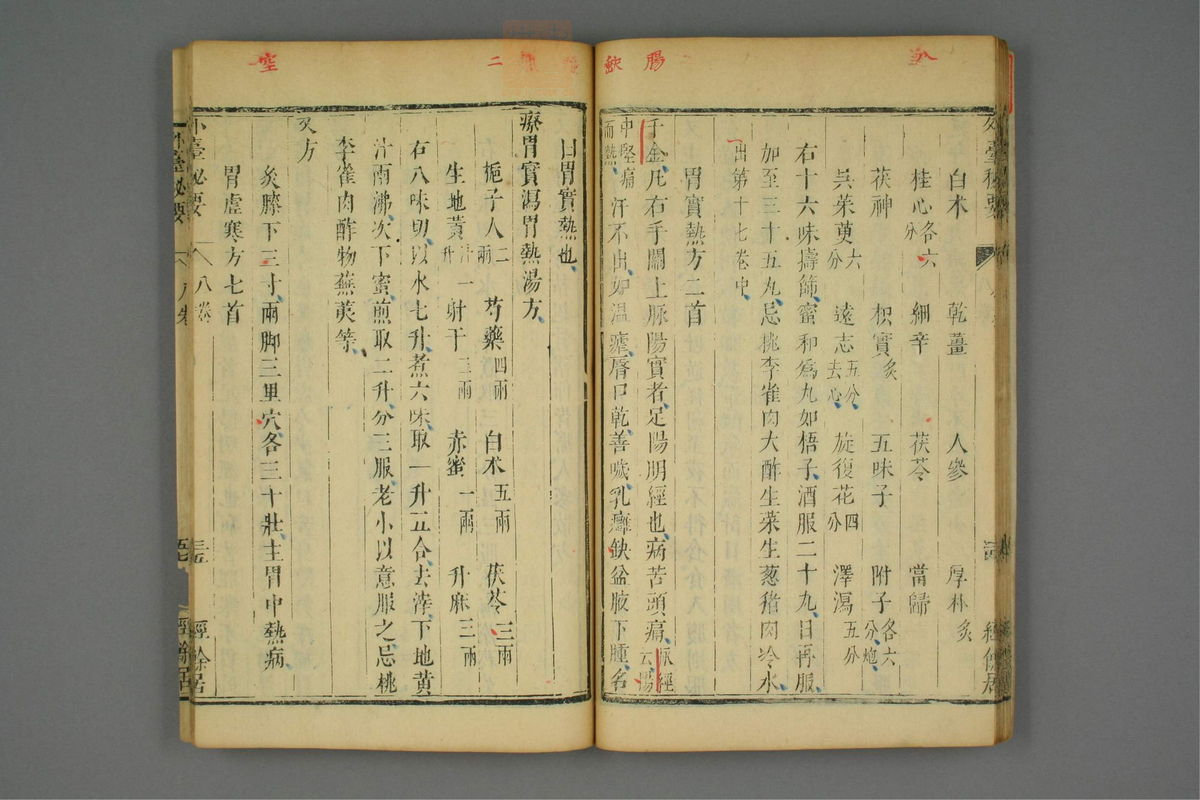 腸
缺
外臺秘要
經餘居
白术 乾薑 人參 厚朴炙
桂心各六分 細辛 茯苓 當歸
茯神 枳實炙 五味子 附子各六分炮
吳茱萸六分 遠志五分去心 旋復花四分 澤瀉五分
右十六味擣篩蜜和爲丸如梧子酒服二十九日再服
加至三十五丸忌桃李雀肉大酢生菜生葱猪肉冷水
出第十七卷中
胃實熱方二首
千金凡右手關上脉陽實者足陽明經也病苦頭痛脉經云陽
中堅痛而熱汗不出如温瘧脣口乾善噦乳癰缺盆腋下腫名
二
空
曰胃實熱也
療胃實瀉胃熱湯方
梔子人二兩 芍藥四兩 白术五兩 茯苓三兩
生地黃汁一升 射干三兩 赤蜜一兩 升麻三兩
右八味切以水七升煮六味取一升五合去滓下地黃
汁兩沸次下蜜煎取二升分三服老小以意服之忌桃
李雀肉酢物蕪荑等
灸方
灸膝下三寸兩脚三里穴各三十壯主胃中熱病
胃虛寒方七首
外臺秘要 八卷 三五 經餘居
外臺秘要 八卷 經餘居